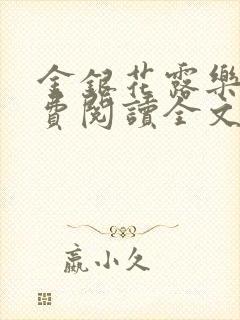 金銀花露樂
費閱讀全文
嬴小久